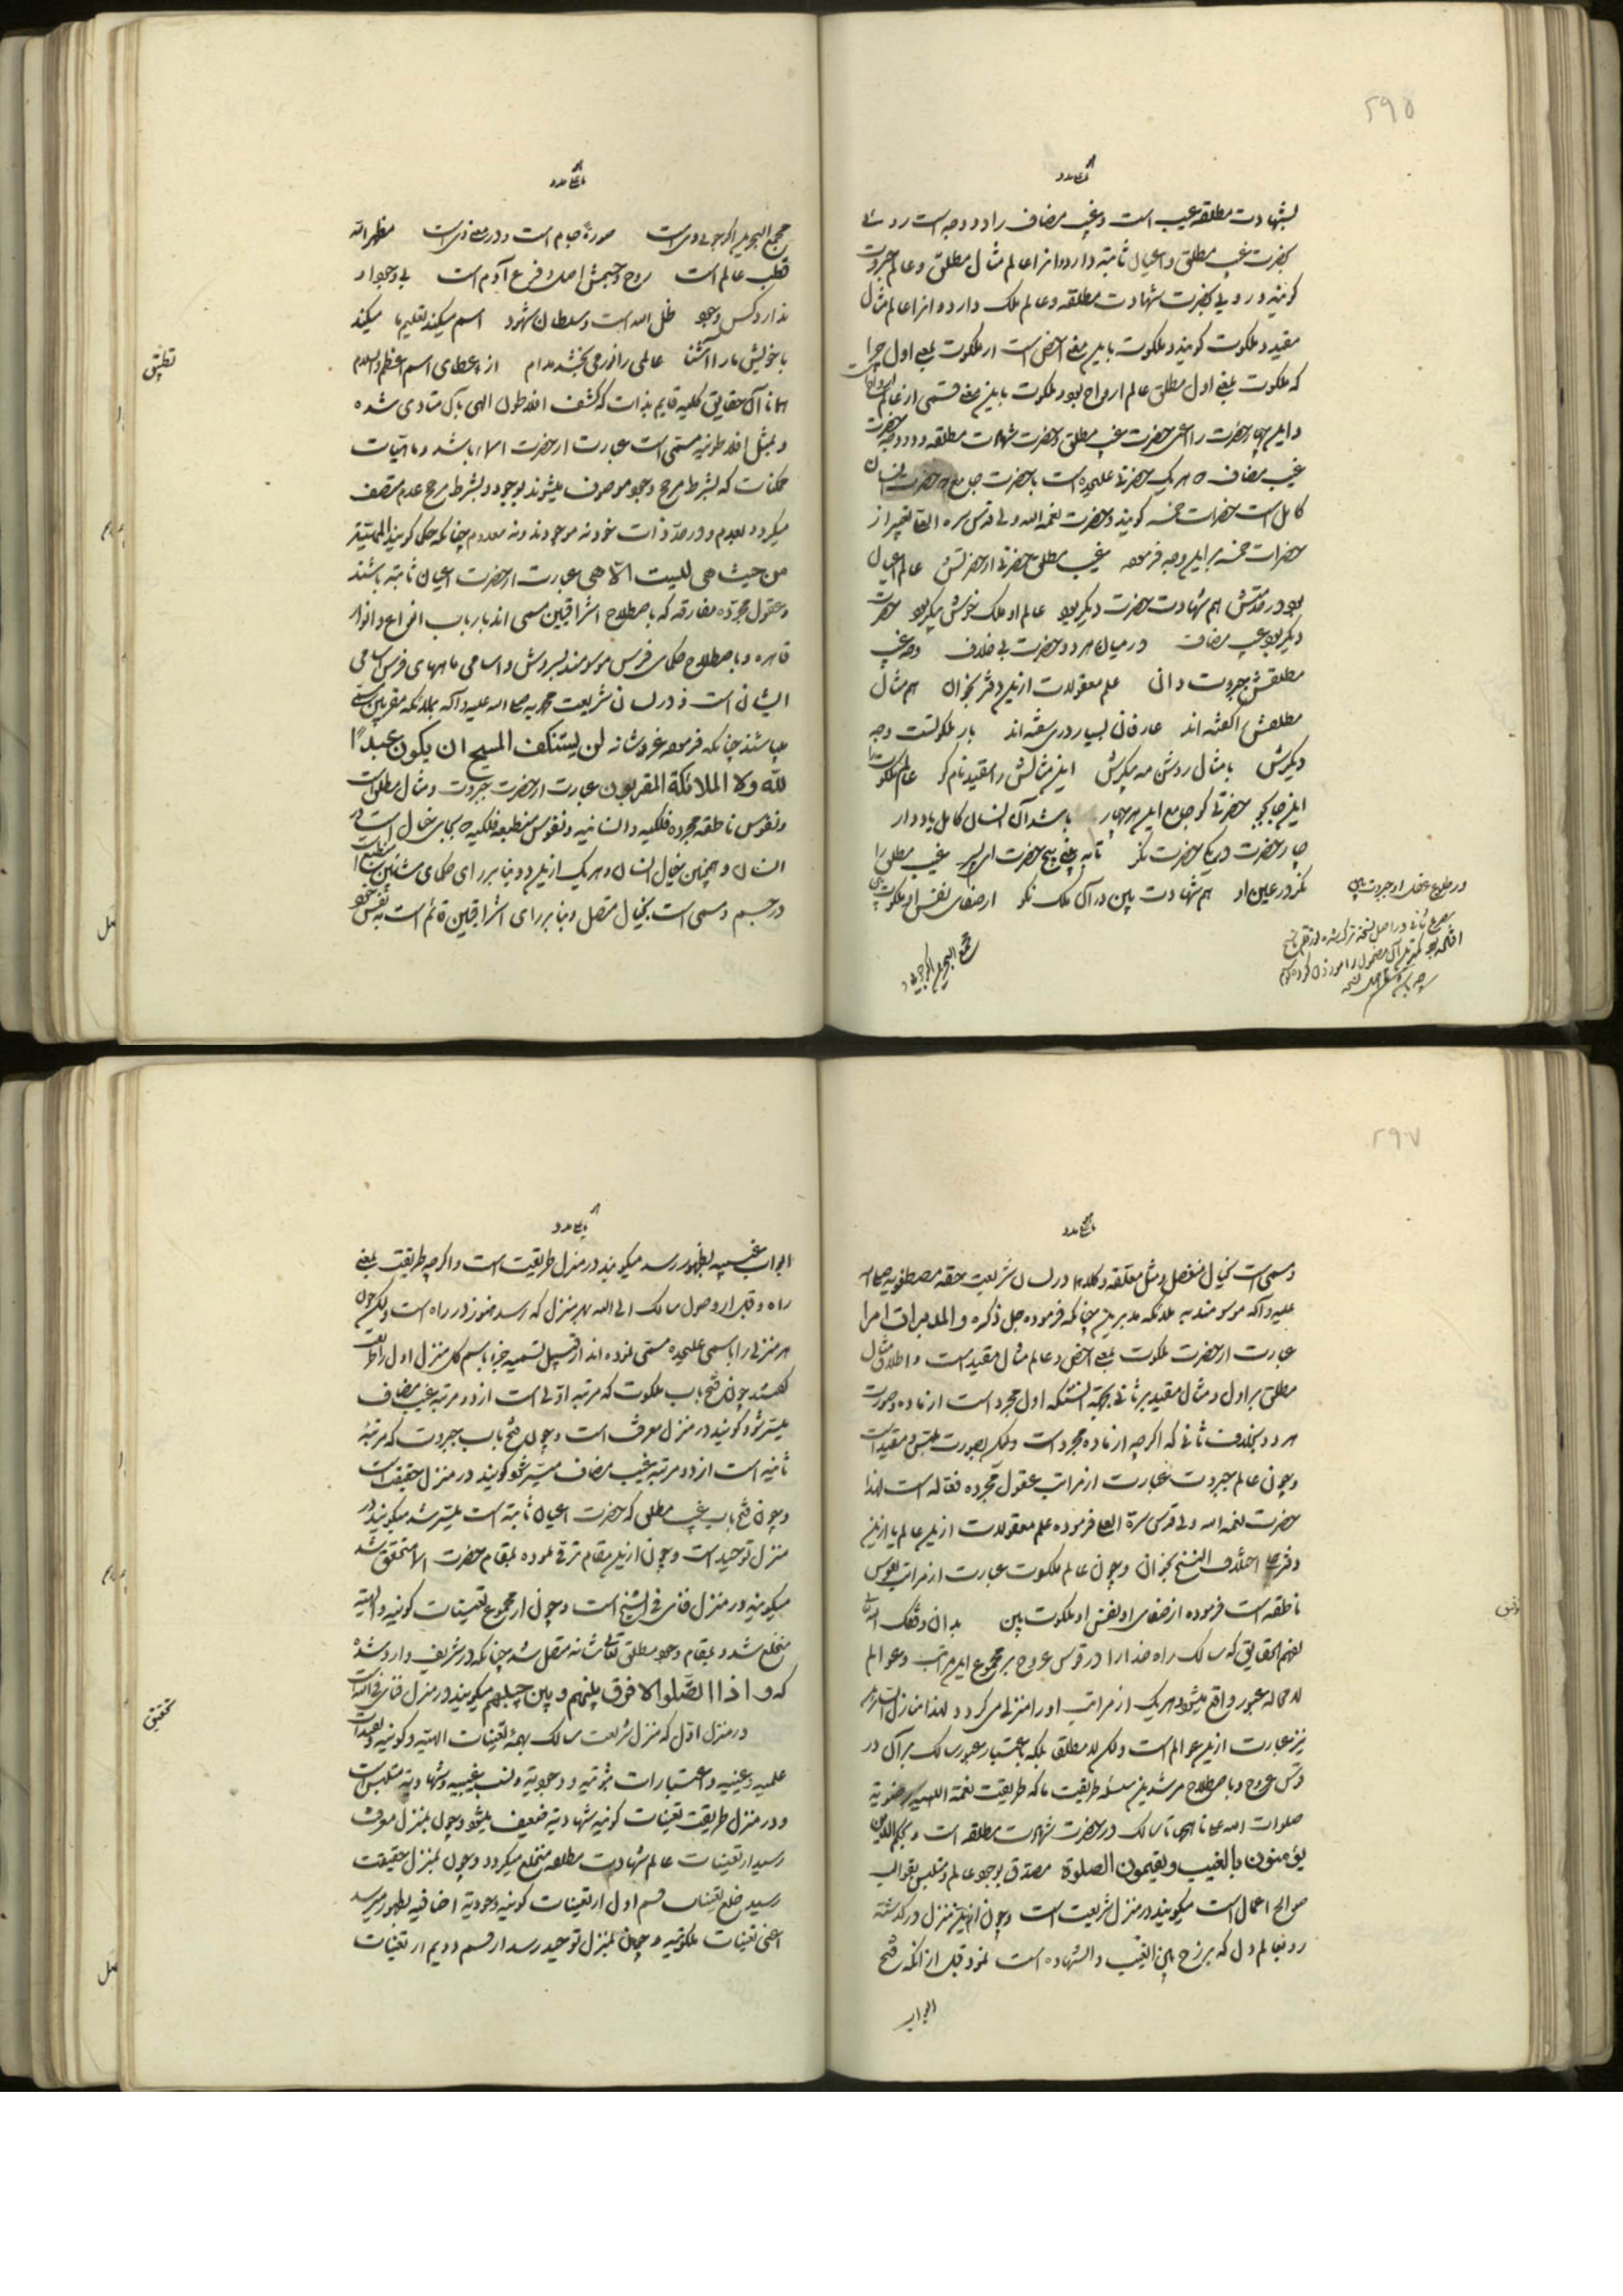 ۲۹۵
بشهادت مطلقه غیب است و غیب مضاف را دو وجه است روئی
بحضرت غیب مطلق و اعیان ثابته دارد و انرا عالم مثال مطلق و عالم جبروت
کویند و رویی بحضرت شهادت مطلقه و عالم ملک دارد و انرا عالم مثال
مقید و ملکوت کویند و ملکوت باین معنی اخص است از ملکوت بمعنی اول چرا
که ملکوت بمعنی اول مطلق عالم ارواح بود و ملکوت باین معنی قسمی از عالم
و این چهار حضرت را اعنی حضرت غیب مطلق و حضرت شهادت مطلقه و دو وجه حضرت
غیب مضاف که هر یک حضرتی علیحده است با حضرت جامع که حضرت انسان
کامل است حضرات خمسه کویند و حضرت نعمة الله ولی قدس سره العزیز تعبیر از
حضرات خمسه براین وجه فرموده غیب مطلق حضرتی از حضرتش عالم اعیان
بود در خدمتش هم شهادت حضرت دیگر بود عالم او ملک خوش پیکر بود حضرت
دیگر بود غیب مضاف در میان هر دو حضرت بی خلاف وجه غیب
مطلقش جبروت دانی علم معقولات ازین دفتر بخوان هم مثال
مطلقش اکفته اند عارفانی بسیار دری سفته اند باز ملکوتست وجه
دیکرش با مثال روشن مه پیکرش این مثالش را مقید نام کو عالم ملکوت را
اینجا بجو حضرتی کو جامع این هر چهار باشد آن انسان کامل یاد دار
چار حضرت در یکی حضرت نکر تا به بینی پنج حضرت ای پسر غیب مطلق را
نکر در عین او هم شهادت بین در آن ملک نکو از صفای نفس او ملکوت بین
در طلوع عقل او جبروت بین
مجمع البحرین اکر جوئی وی است
مجمع البحرین اکر جوئی وی است صورة جام است و در معنی می است مظهر الله
قطب عالم است روح و جسمش اصل و فرع آدم است بی وجود او
ندارد کس وجود ظل الله است و سلطان شهود اسم میکند تعلیم ما میکند
با خویش ما را آشنا عالمی را نور می بخشد مدام از عطای اسم اعظم والسلام
تطبیق
همانا آن حقایق کلیه قایم بذات که کشف افلاطون الهی بآن متادی شده
و بمثل افلاطونیه مسمی است عبارت از حضرت اسماء باشد و ماهیات
ممکنات که بشرط مرجح وجود موصوف میشوند بوجود و بشرط مرجح عدم متصف
میکردد بعدم و در حد ذات خود نه موجودند و نه معدوم چنانکه حکما کویند الماهیة
من حیث هی لیست الا هی عبارت از حضرت اعیان ثابته باشند
و عقول مجرده مفارقه که باصطلاح اشراقیین مسمی اند بارباب انواع و انوار
قاهره و باصطلاح حکمای فرس موسومند بسروش و اسامی ماههای فرس اسامی
ایشان است و در لسان شریعت محمدیه صلی الله علیه و آله بملائکه مقربین مسمی
میباشند چنانکه فرموده عز و شانه لن یستنکف المسیح ان یکون عبدًا
لله ولا الملائکة المقربون عبارت از حضرت جبروت و مثال مطلق است
و نفوس ناطقه مجرده فلکیه و انسانیه و نفوس منطبعه فلکیه که بجای خیال است در
انسان و همچنین خیال انسان و هر یک ازین دو بنا بر رای حکمای مشائین منطبع است
در جسم و مسمی است بخیال متصل و بنا بر رای اشراقیین قائم است به نفس خود
۲۹۷
و مسمی است بخیال منفصل و مثل معلقه و کلاهما در لسان شریعت حقه مصطفویه صلی الله
علیه و آله موسومند به ملائکه مدبرین چنانکه فرموده جل ذکره والمدبرات امرا
عبارت از حضرت ملکوت بمعنی اخص و عالم مثال مقید است و اطلاق مثال
مطلق بر اول و مثال مقید بر ثانی بجهة انستکه اول مجرد است از ماده و صورت
هر دو بخلاف ثانی که اکرچه از ماده مجرد است ولیکن بصورت ملتبس و مقید است
و چون عالم جبروت عبارت از مراتب عقول مجرده فعاله است لهذا
حضرت نعمة الله ولی قدس سره العزیز فرموده علم معقولات ازین عالم یا ازین
دفتر علی اختلاف النسخ بخوان و چون عالم ملکوت عبارت از مراتب نفوس
ناطقه است فرموده از صفای او نفس او ملکوت بین بدان وفقک الله تعالی
لفهم الحقایق که سالک راه خدا را در قوس عروج بر مجموع این مراتب و عوالم
لا محاله عبور واقع میشود و هر یک از مراتب او را منزلی می کردد لهذا منازل السایرین
نیز عبارت ازین عوالم است ولکن لا مطلقا بلکه باعتبار عبور سالک بر آن در
قوس عروج و باصطلاح مرشدین سلسله طریقت ما که طریقت نعمة اللهیه رضویة
صلوات الله علی صاحبها تا سالک در حضرت شهادت مطلقه است و بحکم الذین
یؤمنون بالغیب و یقیمون الصلوة مصدق بوجود عالم و متلبس بقوالب
صوالح اعمال است میکویند در منزل شریعت است و چون ازین منزل در کذشته
رو بعالم دل که برزخ بین الغیب و الشهاده است نمود قبل از انکه فتح
ابواب
ابواب غیبیه بظهور رسد میکویند در منزل طریقت است و اکرچه طریقت بمعنی
راه و قبل از وصول سالک الی الله بهر منزل که رسد هنوز در راه است ولیکن چون
هر منزلی را باسمی علیحده مسمی نموده اند از قبیل تسمیه جزء باسم کل منزل اول را طریقت
کفتند چون فتح باب ملکوت که مرتبه اولی است از دو مرتبه غیب مضاف
میسر شود کویند در منزل معرفت است و چون فتح باب جبروت که مرتبه
ثانیه است از دو مرتبه غیب مضاف میسر شود کویند در منزل حقیقت است
و چون فتح باب غیب مطلق که حضرت اعیان ثابته است میسر شد میکویند در
منزل توحید است و چون ازین مقام ترقی نموده بمقام حضرت الاسماء متحقق شد
میکویند در منزل فنای فی الشیخ است و چون از مجموع تعینات کونیه و الهیه
منخلع شد و بمقام وجود مطلق تعالی شانه متصل شد چنانکه در شریف وارد شده
که و اذا اتصلوا لا فرق بینهم و بین حبیبهم میکویند در منزل فنای فی الله است
تحقیق
در منزل اول که منزل شریعت سالک بهمه تعینات الهیه و کونیه و تقیدات
علمیه و عینیه و اعتبارات ثبوتیه و وجوبیه و نسب غیبیه و شهادیه متلبس است
و در منزل طریقت تعینات کونیه شهادیه ضعیف میشود و چون بمنزل معرفت
رسید از تعینات عالم شهادت مطلقه منخلع میکردد و چون بمنزل حقیقت
رسید خلع تعینات قسم اول از تعینات کونیه وجودیة اضافیه بظهور میرسد
اعنی تعینات ملکوتیه و چون بمنزل توحید رسد از قسم دویم از تعینات